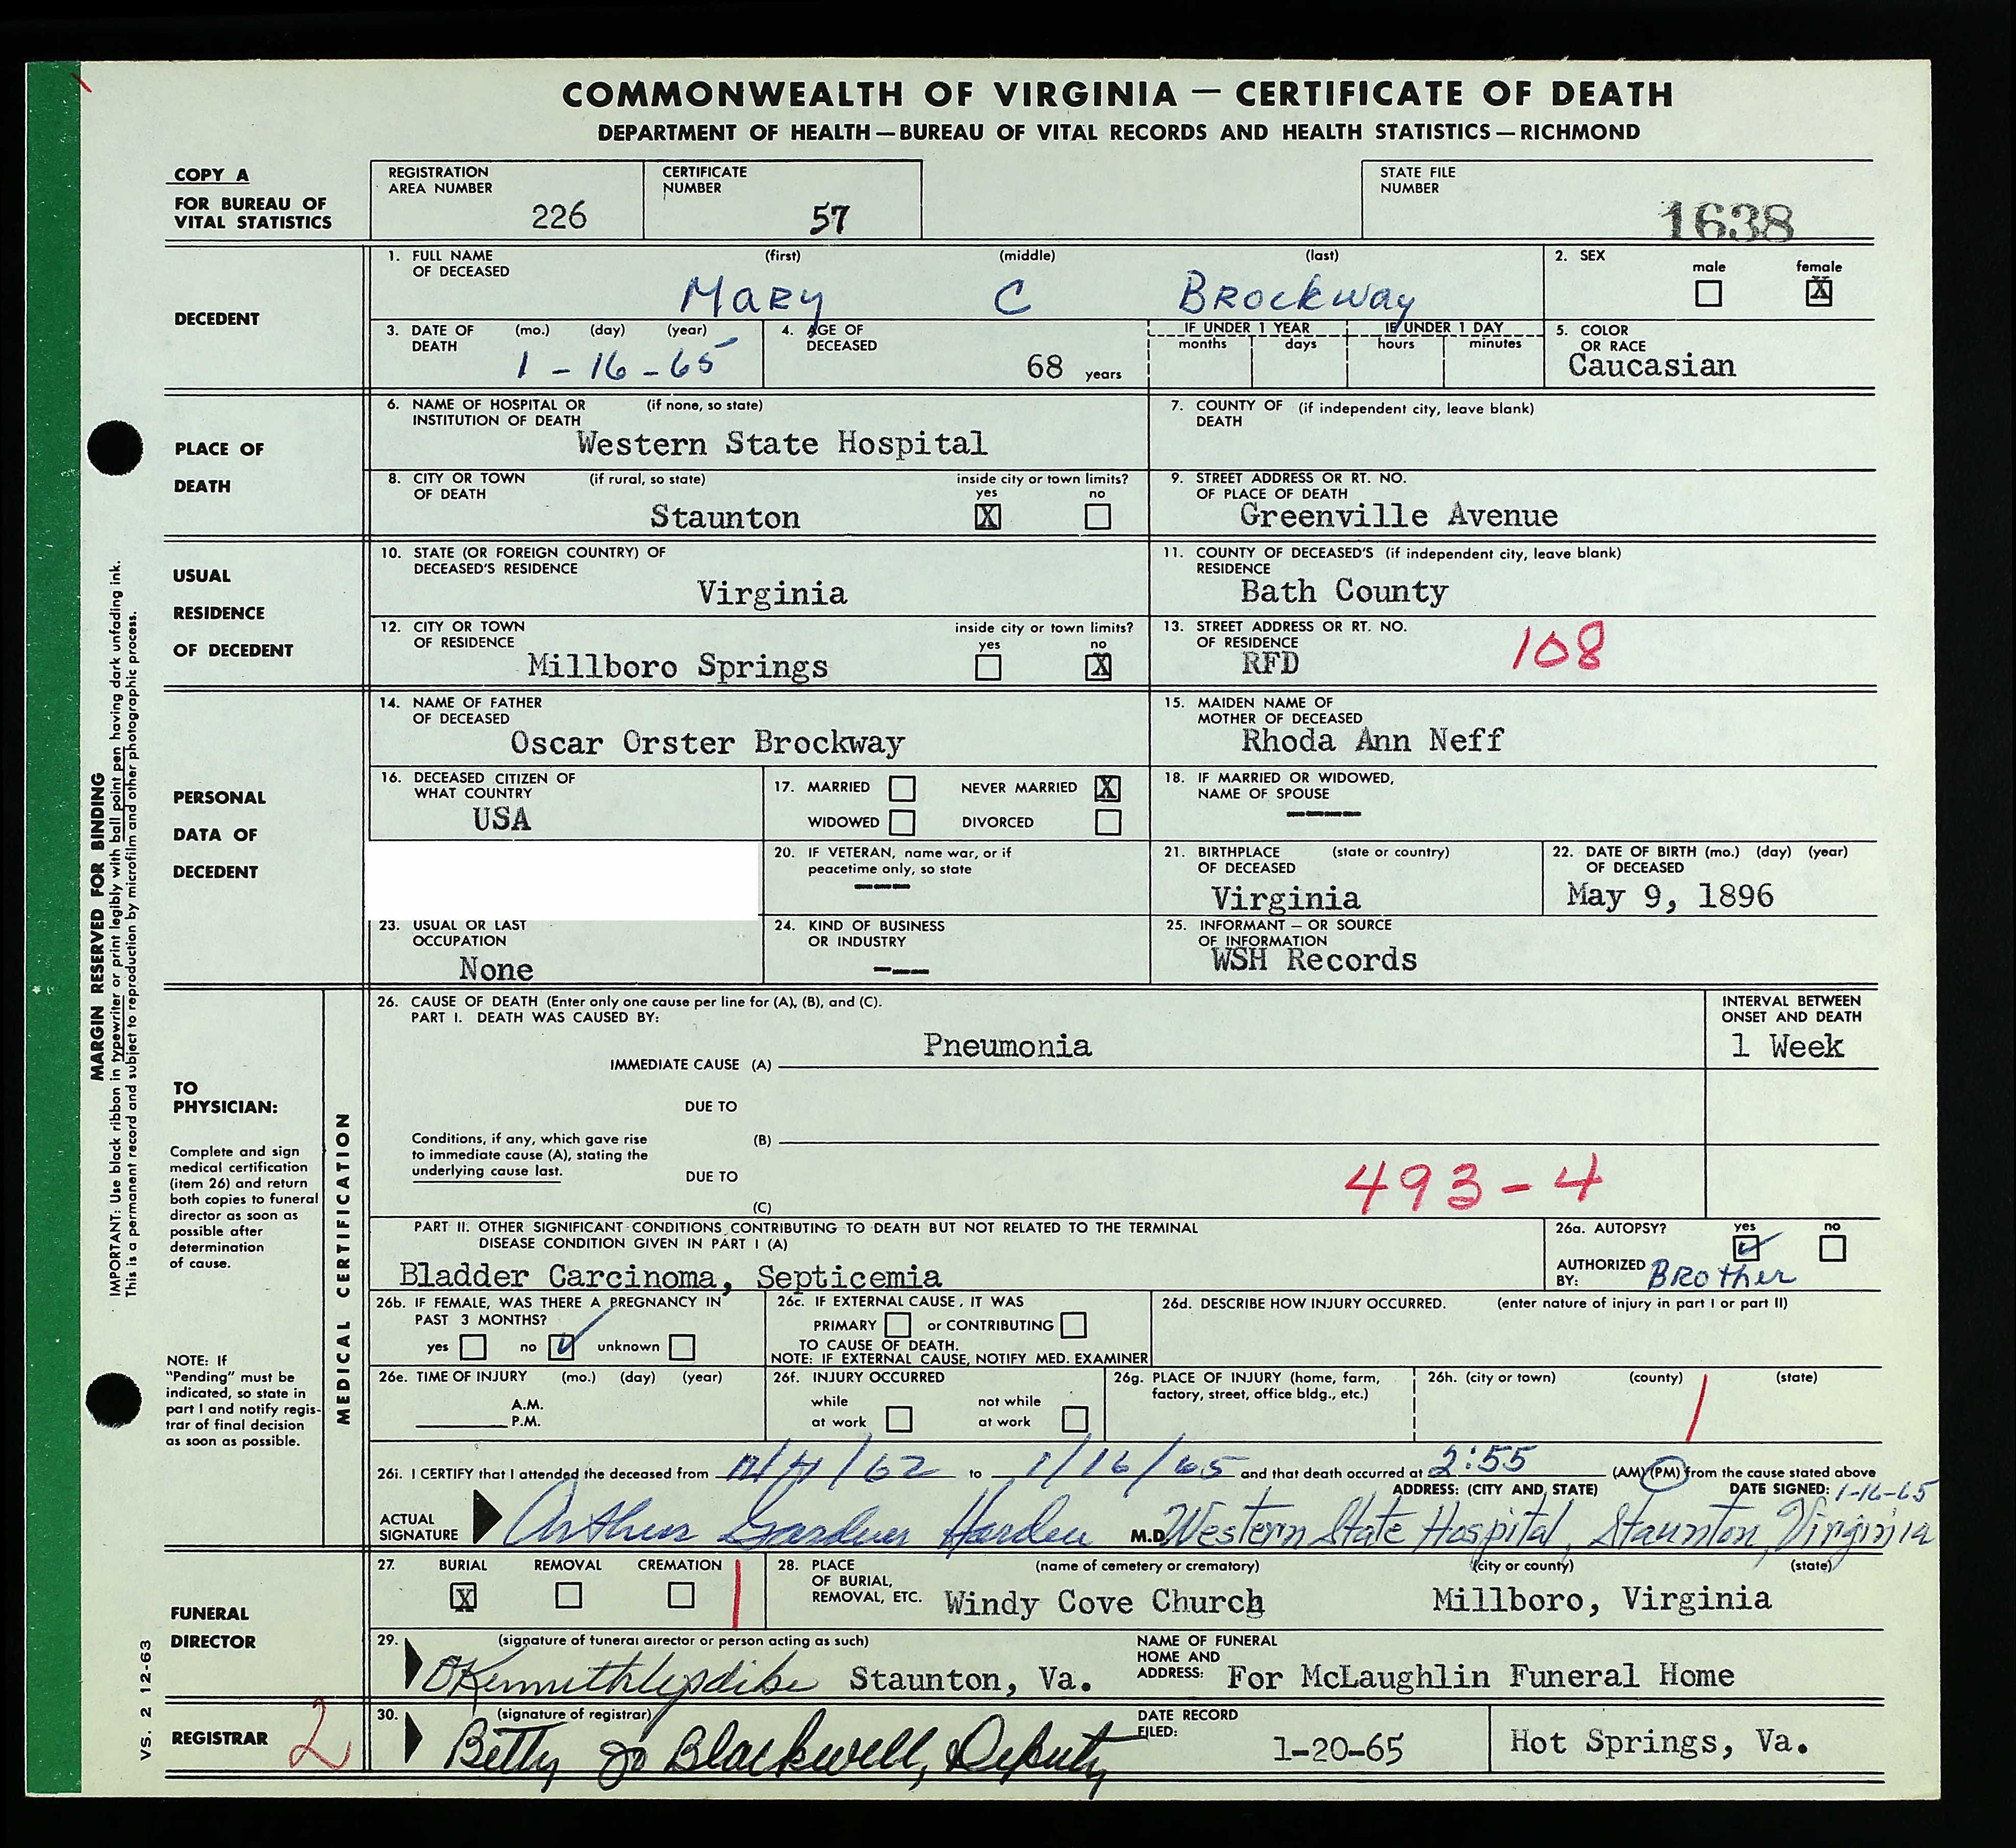 COMMONWEALTH OF VIRGINIA — CERTIFICATE OF DEATH
DEPARTMENT OF HEALTH — BUREAU OF VITAL RECORDS AND HEALTH STATISTICS — RICHMOND
COPY A
FOR BUREAU OF
VITAL STATISTICS
REGISTRATION
AREA NUMBER
226
CERTIFICATE
NUMBER
57
STATE FILE
NUMBER
1638
DECEDENT
1. FULL NAME
OF DECEASED
(first) (middle) (last)
Mary C Brockway
2. SEX
male female
X
3. DATE OF
DEATH
(mo.) (day) (year)
1-16-65
4. AGE OF
DECEASED
68 years
IF UNDER 1 YEAR
months days
IF UNDER 1 DAY
hours minutes
5. COLOR
OR RACE
Caucasian
PLACE OF
DEATH
6. NAME OF HOSPITAL OR (if none, so state)
INSTITUTION OF DEATH
Western State Hospital
7. COUNTY OF (if independent city, leave blank)
DEATH
8. CITY OR TOWN (if rural, so state)
OF DEATH
Staunton
inside city or town limits?
yes no
X
9. STREET ADDRESS OR RT. NO.
OF PLACE OF DEATH
Greenville Avenue
USUAL
RESIDENCE
OF DECEDENT
10. STATE (OR FOREIGN COUNTRY) OF
DECEASED'S RESIDENCE
Virginia
11. COUNTY OF DECEASED'S (if independent city, leave blank)
RESIDENCE
Bath County
12. CITY OR TOWN
OF RESIDENCE
Millboro Springs
inside city or town limits?
yes no
X
13. STREET ADDRESS OR RT. NO.
OF RESIDENCE
RFD
108
PERSONAL
DATA OF
DECEDENT
14. NAME OF FATHER
OF DECEASED
Oscar Orster Brockway
15. MAIDEN NAME OF
MOTHER OF DECEASED
Rhoda Ann Neff
16. DECEASED CITIZEN OF
WHAT COUNTRY
USA
17. MARRIED NEVER MARRIED X
WIDOWED DIVORCED
18. IF MARRIED OR WIDOWED,
NAME OF SPOUSE
----
20. IF VETERAN, name war, or if
peacetime only, so state
---
21. BIRTHPLACE (state or country)
OF DECEASED
Virginia
22. DATE OF BIRTH (mo.) (day) (year)
OF DECEASED
May 9, 1896
23. USUAL OR LAST
OCCUPATION
None
24. KIND OF BUSINESS
OR INDUSTRY
---
25. INFORMANT — OR SOURCE
OF INFORMATION
WSH Records
TO
PHYSICIAN:
Complete and sign
medical certification
(item 26) and return
both copies to funeral
director as soon as
possible after
determination
of cause.
NOTE: If
"Pending" must be
indicated, so state in
part I and notify regis-
trar of final decision
as soon as possible.
MEDICAL CERTIFICATION
26. CAUSE OF DEATH (Enter only one cause per line for (A), (B), and (C).
PART I. DEATH WAS CAUSED BY:
INTERVAL BETWEEN
ONSET AND DEATH
Pneumonia
1 Week
IMMEDIATE CAUSE (A)
DUE TO
Conditions, if any, which gave rise
to immediate cause (A), stating the
underlying cause last.
(B)
DUE TO
(C)
493-4
PART II. OTHER SIGNIFICANT CONDITIONS CONTRIBUTING TO DEATH BUT NOT RELATED TO THE TERMINAL
DISEASE CONDITION GIVEN IN PART I (A)
Bladder Carcinoma, Septicemia
26a. AUTOPSY? yes no
AUTHORIZED
BY:
Brother
26b. IF FEMALE, WAS THERE A PREGNANCY IN
PAST 3 MONTHS?
yes no unknown
26c. IF EXTERNAL CAUSE, IT WAS
PRIMARY or CONTRIBUTING
TO CAUSE OF DEATH.
NOTE: IF EXTERNAL CAUSE, NOTIFY MED. EXAMINER
26d. DESCRIBE HOW INJURY OCCURRED. (enter nature of injury in part I or part II)
26e. TIME OF INJURY (mo.) (day) (year)
A.M.
P.M.
26f. INJURY OCCURRED
while
at work
not while
at work
26g. PLACE OF INJURY (home, farm,
factory, street, office bldg., etc.)
26h. (city or town) (county) (state)
26i. I CERTIFY that I attended the deceased from /62 to 1/16/65 and that death occurred at 2:55 (AM) (PM) from the cause stated above
ADDRESS: (CITY AND STATE) DATE SIGNED: 1-16-65
ACTUAL
SIGNATURE
Arthur Gardner Harden M.D. Western State Hospital, Staunton, Virginia
FUNERAL
DIRECTOR
27. BURIAL REMOVAL CREMATION
X
28. PLACE
OF BURIAL,
REMOVAL, ETC.
(name of cemetery or crematory) (city or county) (state)
Windy Cove Church Millboro, Virginia
29. (signature of funeral director or person acting as such)
Staunton, Va.
NAME OF FUNERAL
HOME AND
ADDRESS:
For McLaughlin Funeral Home
REGISTRAR
2
30. (signature of registrar)
Betty Jo Blackwell, Deputy
DATE RECORD
FILED:
1-20-65
Hot Springs, Va.
MARGIN RESERVED FOR BINDING
IMPORTANT: Use black ribbon in typewriter or print legibly with ball point pen having dark unfading ink.
This is a permanent record and subject to reproduction by microfilm and other photographic process.
VS. 2 12-63